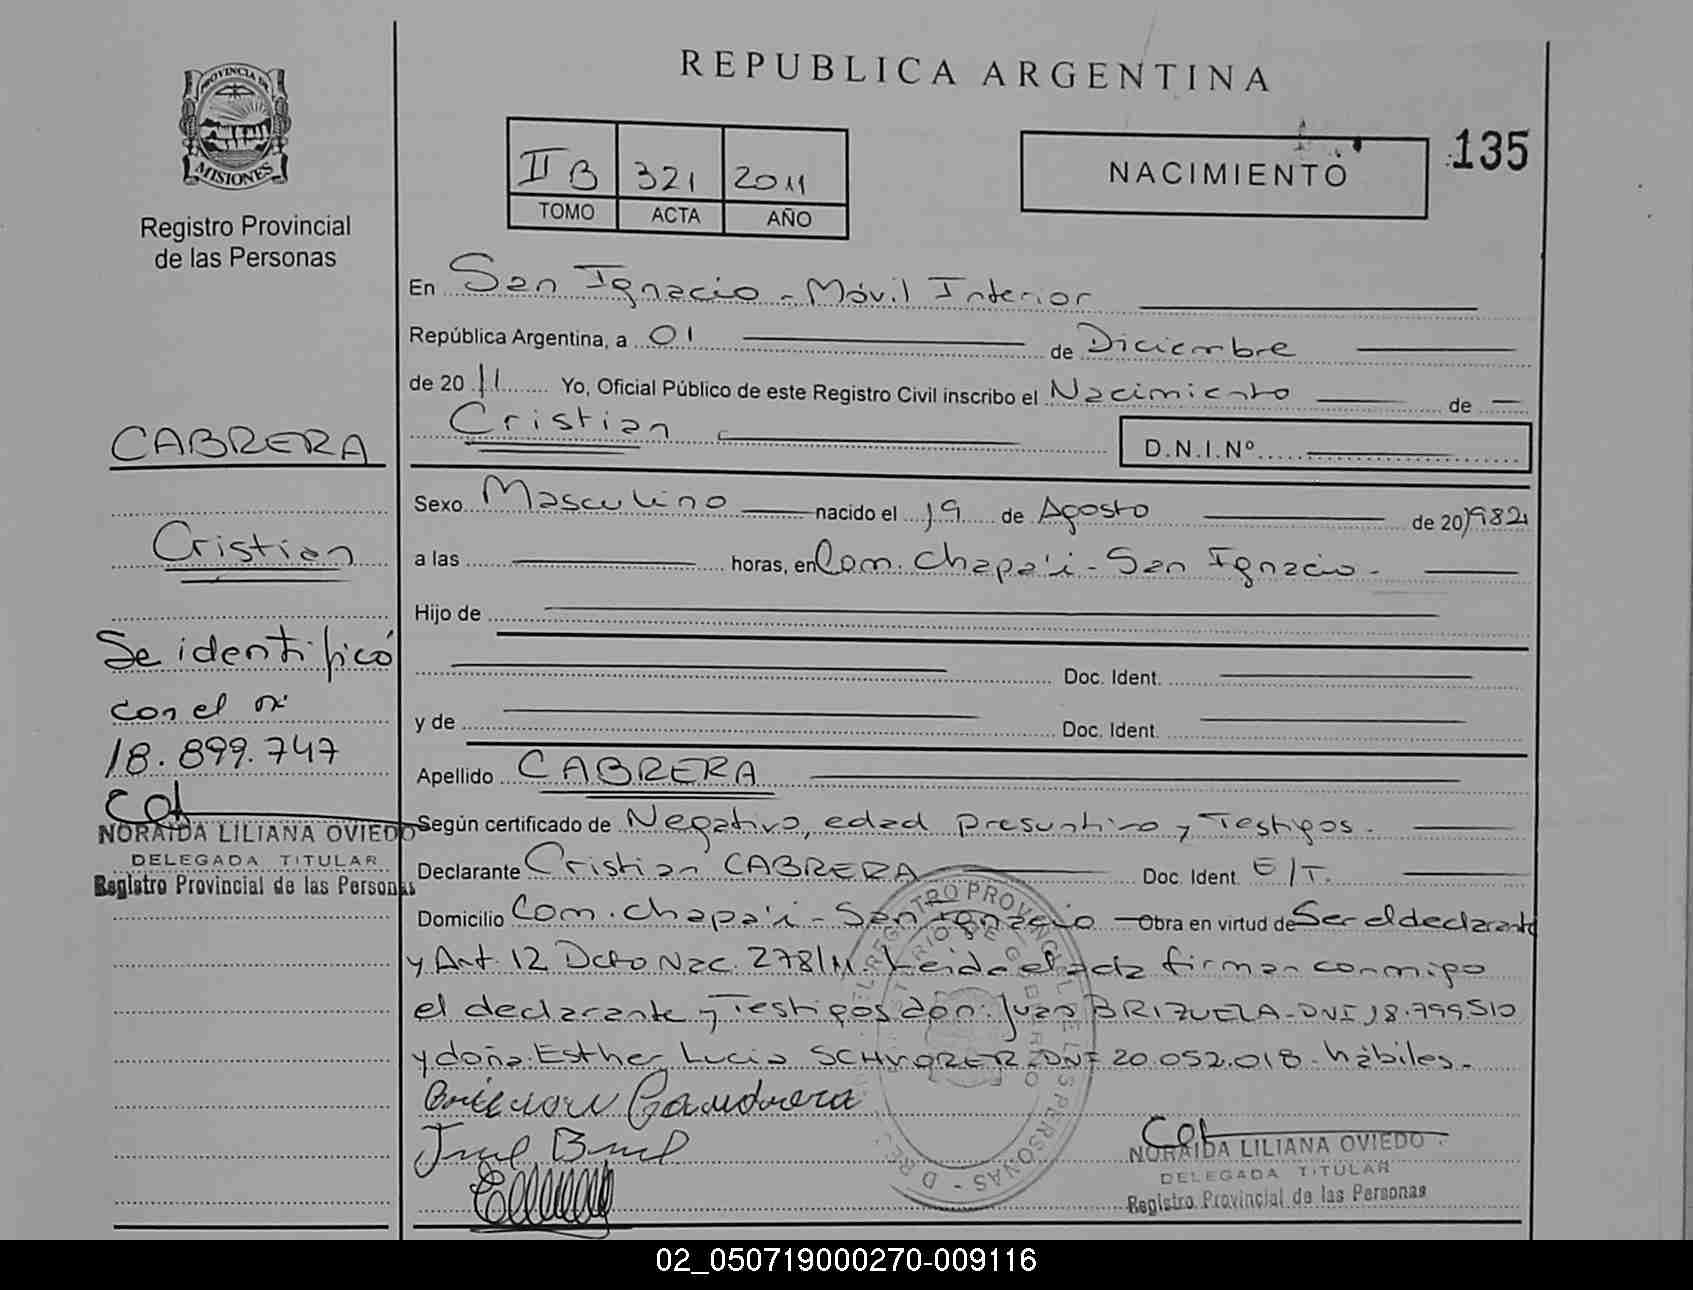 REPUBLICA ARGENTINA
PROVINCIA DE
MISIONES
Registro Provincial
de las Personas
II B 321 2011
TOMO ACTA AÑO
NACIMIENTO
135
En San Ignacio - Móvil Interior
República Argentina, a 01 de Diciembre
de 2011 Yo, Oficial Público de este Registro Civil inscribo el Nacimiento de
Cristian
D.N.I.Nº
CABRERA
Cristian
Se identificó
con el nº
18.899.747
NORAIDA LILIANA OVIEDO
DELEGADA TITULAR
Registro Provincial de las Personas
Sexo Masculino nacido el 19 de Agosto de 201982
a las horas, en Com. Chapa'i - San Ignacio -
Hijo de
Doc. Ident.
y de Doc. Ident.
Apellido CABRERA
Según certificado de Negativo, edad presuntiva y Testigos.
Declarante Cristian CABRERA Doc. Ident. E/T.
Domicilio Com. Chapa'i - San Ignacio Obra en virtud de Ser el declarante
y Art. 12 Dcto Nac. 278/11. Leida el acta firman conmigo
el declarante y Testigos don: Juan BRIZUELA - DNI 18.799510
y doña: Esther Lucia DNI 20.052.018 - hábiles.
NORAIDA LILIANA OVIEDO
DELEGADA TITULAR
Registro Provincial de las Personas
02_050719000270-009116